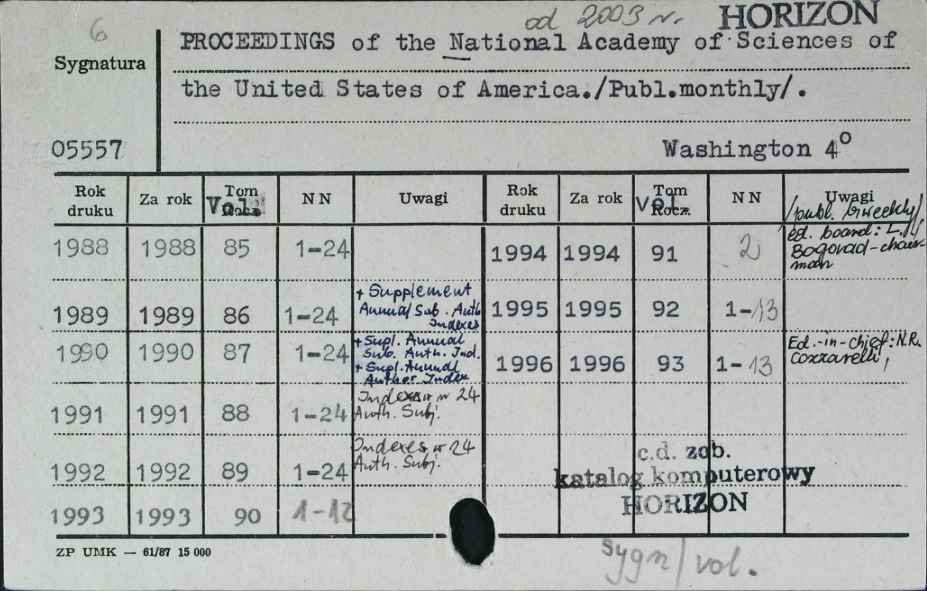 6
od 2003 r. HORIZON
Sygnatura
PROCEEDINGS of the National Academy of Sciences of
the United States of America./Publ.monthly/.
05557
Washington 4°
Rok druku Za rok Tom Vol. N N Uwagi Rok druku Za rok Tom Rocz. Vol. N N Uwagi
/publ. biweekly/
1988 1988 85 1-24
1994 1994 91 2 ed. board: L.
Bogorad-chair-
man
1989 1989 86 1-24 + Supplement
Annual Sub. Auth.
Indexes
1995 1995 92 1-13
1990 1990 87 1-24 + Supl. Annual
Sub. Auth. Ind.
+ Supl. Annual
Author Index
1996 1996 93 1-13 Ed.-in-chief: N.R.
Cozzarelli,
1991 1991 88 1-24 Indexes w nr 24
Auth. Subj.
1992 1992 89 1-24 Indexes w 24
Auth. Subj.
1993 1993 90 1-12
c.d. zob.
katalog komputerowy
HORIZON
ZP UMK — 61/87 15 000
sygn/vol.